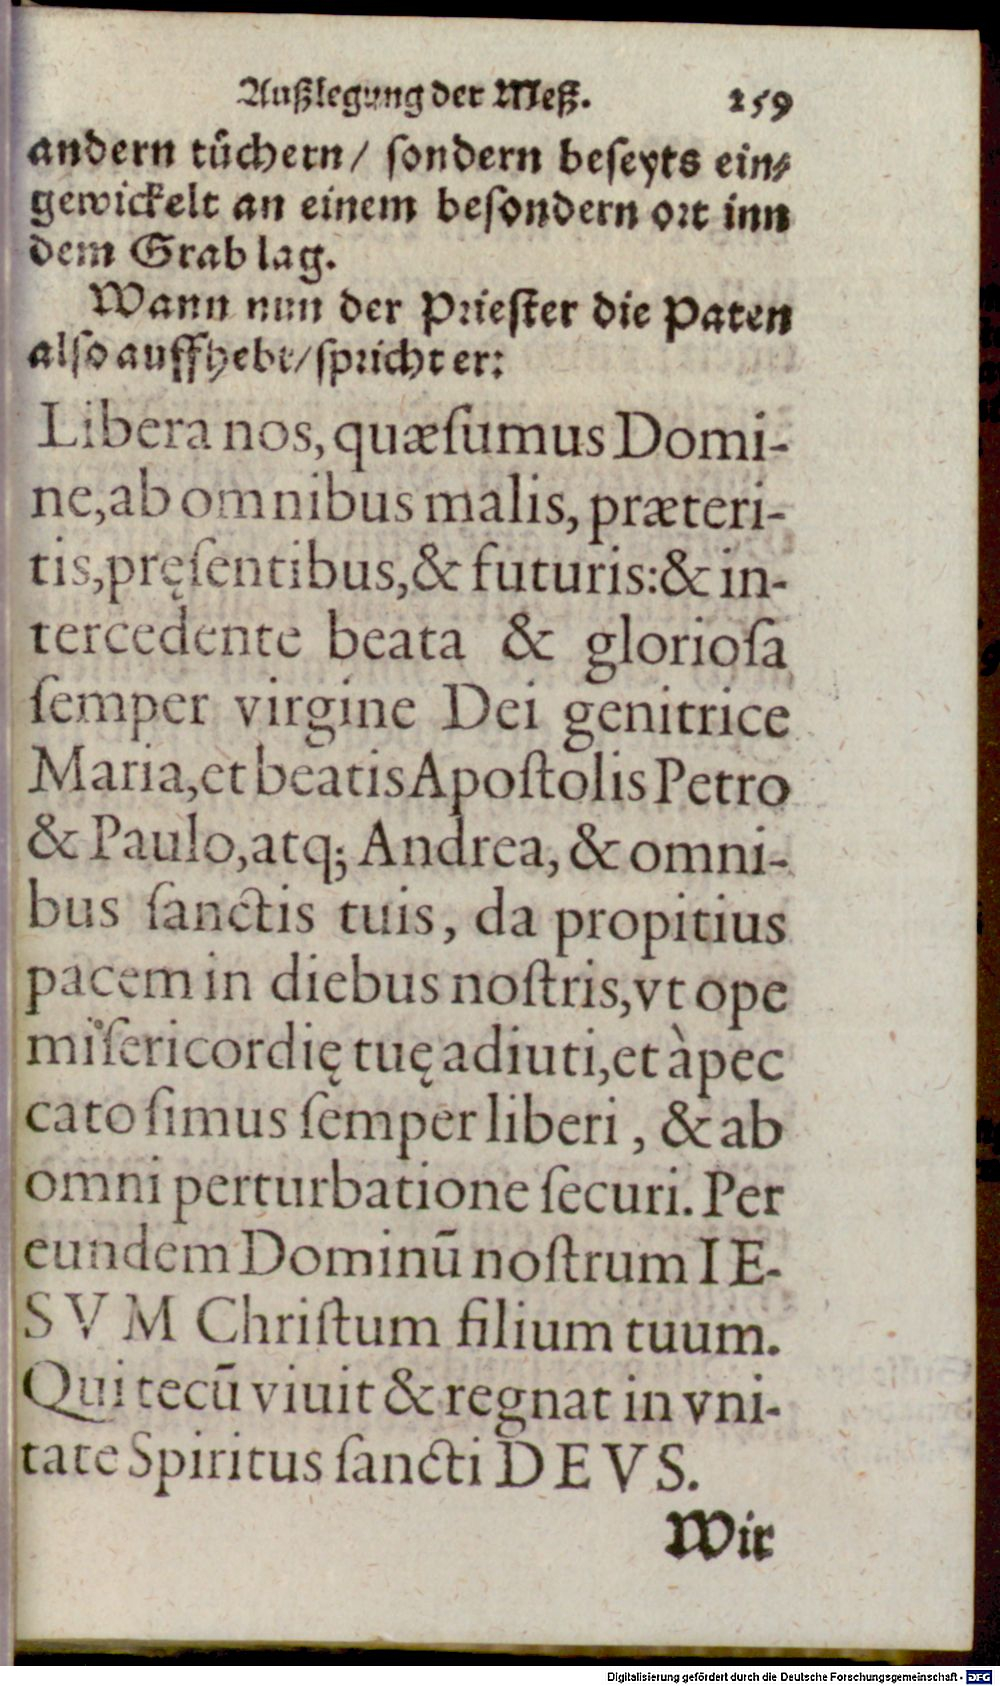 Außlegung der Meß. 259
andern tüchern/ sondern beseyts ein⸗
gewickelt an einem besondern ort inn
dem Grab lag.
Wann nun der Priester die Paten
also auffhebt/ spricht er:
Libera nos, quæſumus Domi-
ne, ab omnibus malis, præteri-
tis, pręſentibus, & futuris: & in-
tercedente beata & glorioſa
ſemper virgine Dei genitrice
Maria, et beatis Apoſtolis Petro
& Paulo, atq; Andrea, & omni-
bus ſanctis tuis, da propitius
pacem in diebus noſtris, vt ope
miſericordię tuę adiuti, et à pec
cato ſimus ſemper liberi, & ab
omni perturbatione ſecuri. Per
eundem Dominū noſtrum IE-
SVM Chriſtum filium tuum.
Qui tecū viuit & regnat in vni-
tate Spiritus ſancti DEVS.
Wir
Digitalisierung gefördert durch die Deutsche Forschungsgemeinschaft - DFG